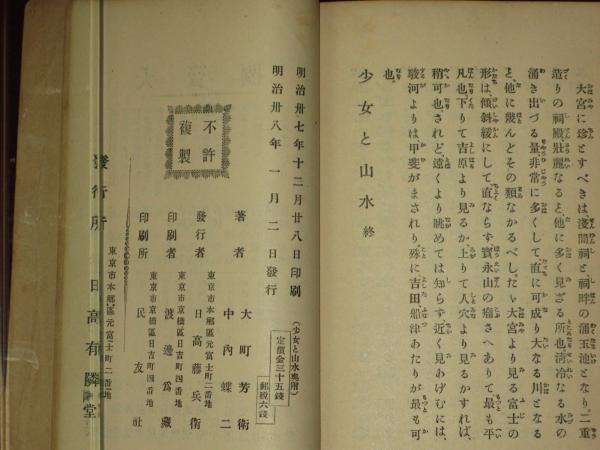 大宮に珍とすべきは淺間祠と、祠畔の涌玉池となり。二重
造りの祠殿壯麗なると、他に多く見ざる所也。淸冷なる水の
涌き出づる量、非常に多くして、直に可成り大なる川となる
と、他に幾んどその類なかるべし。たゞ大宮より見る富士の
形は、傾斜緩にして直ならず、寳永山の瘤さへありて最も平
凡也。下りて吉原より見るか、上りて人穴より見るかすれば、
稍可也。されど、遠くより眺めては知らず、近く見あげむには、
駿河よりは甲斐がまされり。殊に吉田、船津あたりが最も可
也。
少女と山水 終
明治卅七年十二月廿八日印刷
明治卅八年一月二日發行
(少女と山水奥附)
定價金三十五錢
郵税六錢
不許
複製
著者
大町芳衛
中內蝶二
東京市本鄕區元富士町二番地
發行者
日高藤兵衛
東京市京橋區日吉町四番地
印刷者
渡邊爲藏
東京市京橋區日吉町四番地
印刷所
民友社
東京市本鄕區元富士町二番地
發行所
日高有隣堂